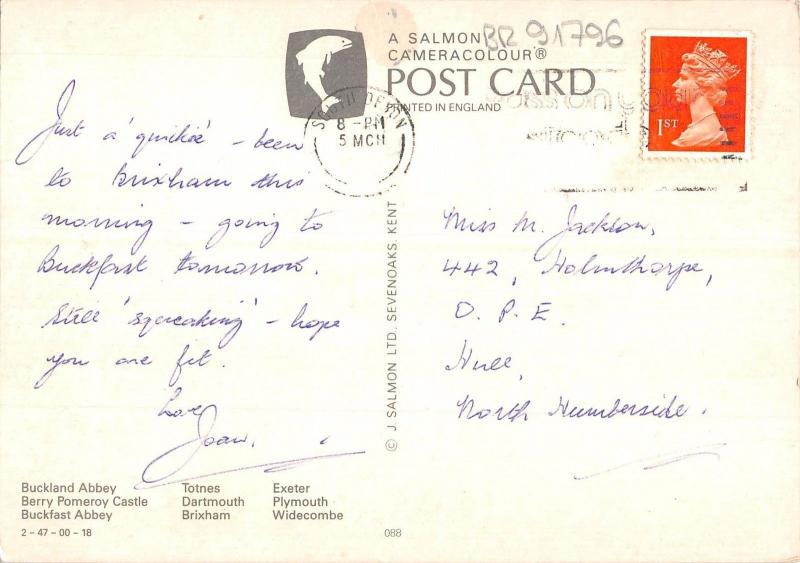 A SALMON
CAMERACOLOUR®
POST CARD
PRINTED IN ENGLAND
BR 91796
SOUTH DEVON
8 - PM
5 MCH
1ST
Just a 'quickie' - been
to Brixham this
morning - going to
Buckfast tomorrow.
Still 'squeaking' - hope
you are fit.
Love
Joan.
© J. SALMON LTD. SEVENOAKS. KENT
Miss M. Jackson,
442, Holmthorpe,
O. P. E.
Hull,
North Humberside.
Buckland Abbey Totnes Exeter
Berry Pomeroy Castle Dartmouth Plymouth
Buckfast Abbey Brixham Widecombe
2-47-00-18
088